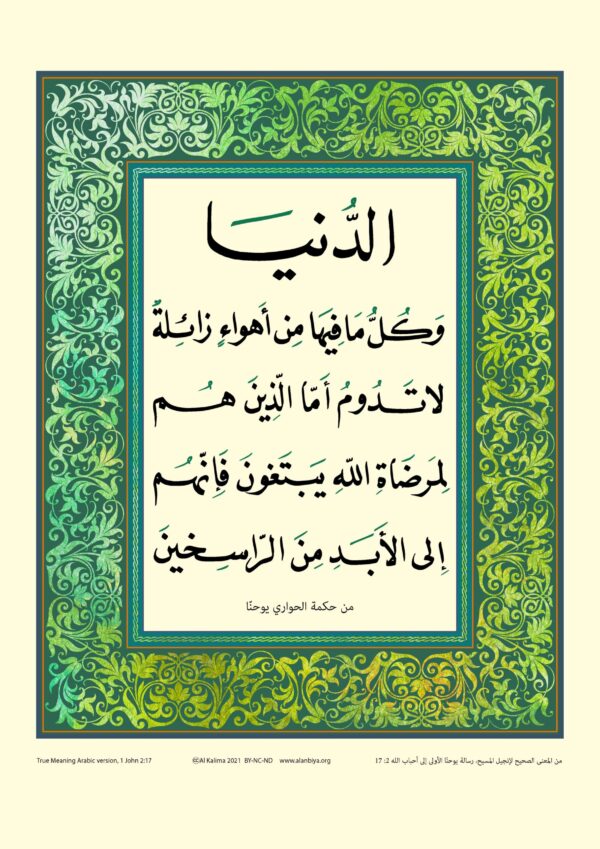 الدُّنيا
وَكُلُّ مَا فِيهَا مِن أَهواءٍ زائِلةٌ
لا تَدُومُ أَمّا الَّذِينَ هُم
لِمَرضَاةِ اللهِ يَبتَغونَ فَإِنَّهُم
إِلى الأَبَدِ مِنَ الرّاسِخينَ
من حكمة الحواري يوحنّا
True Meaning Arabic version, 1 John 2:17
🅭Al Kalima 2021 BY-NC-ND www.alanbiya.org
من المعنى الصحيح لإنجيل المسيح، رسالة يوحنّا الأولى إلى أحباب الله 2: 17